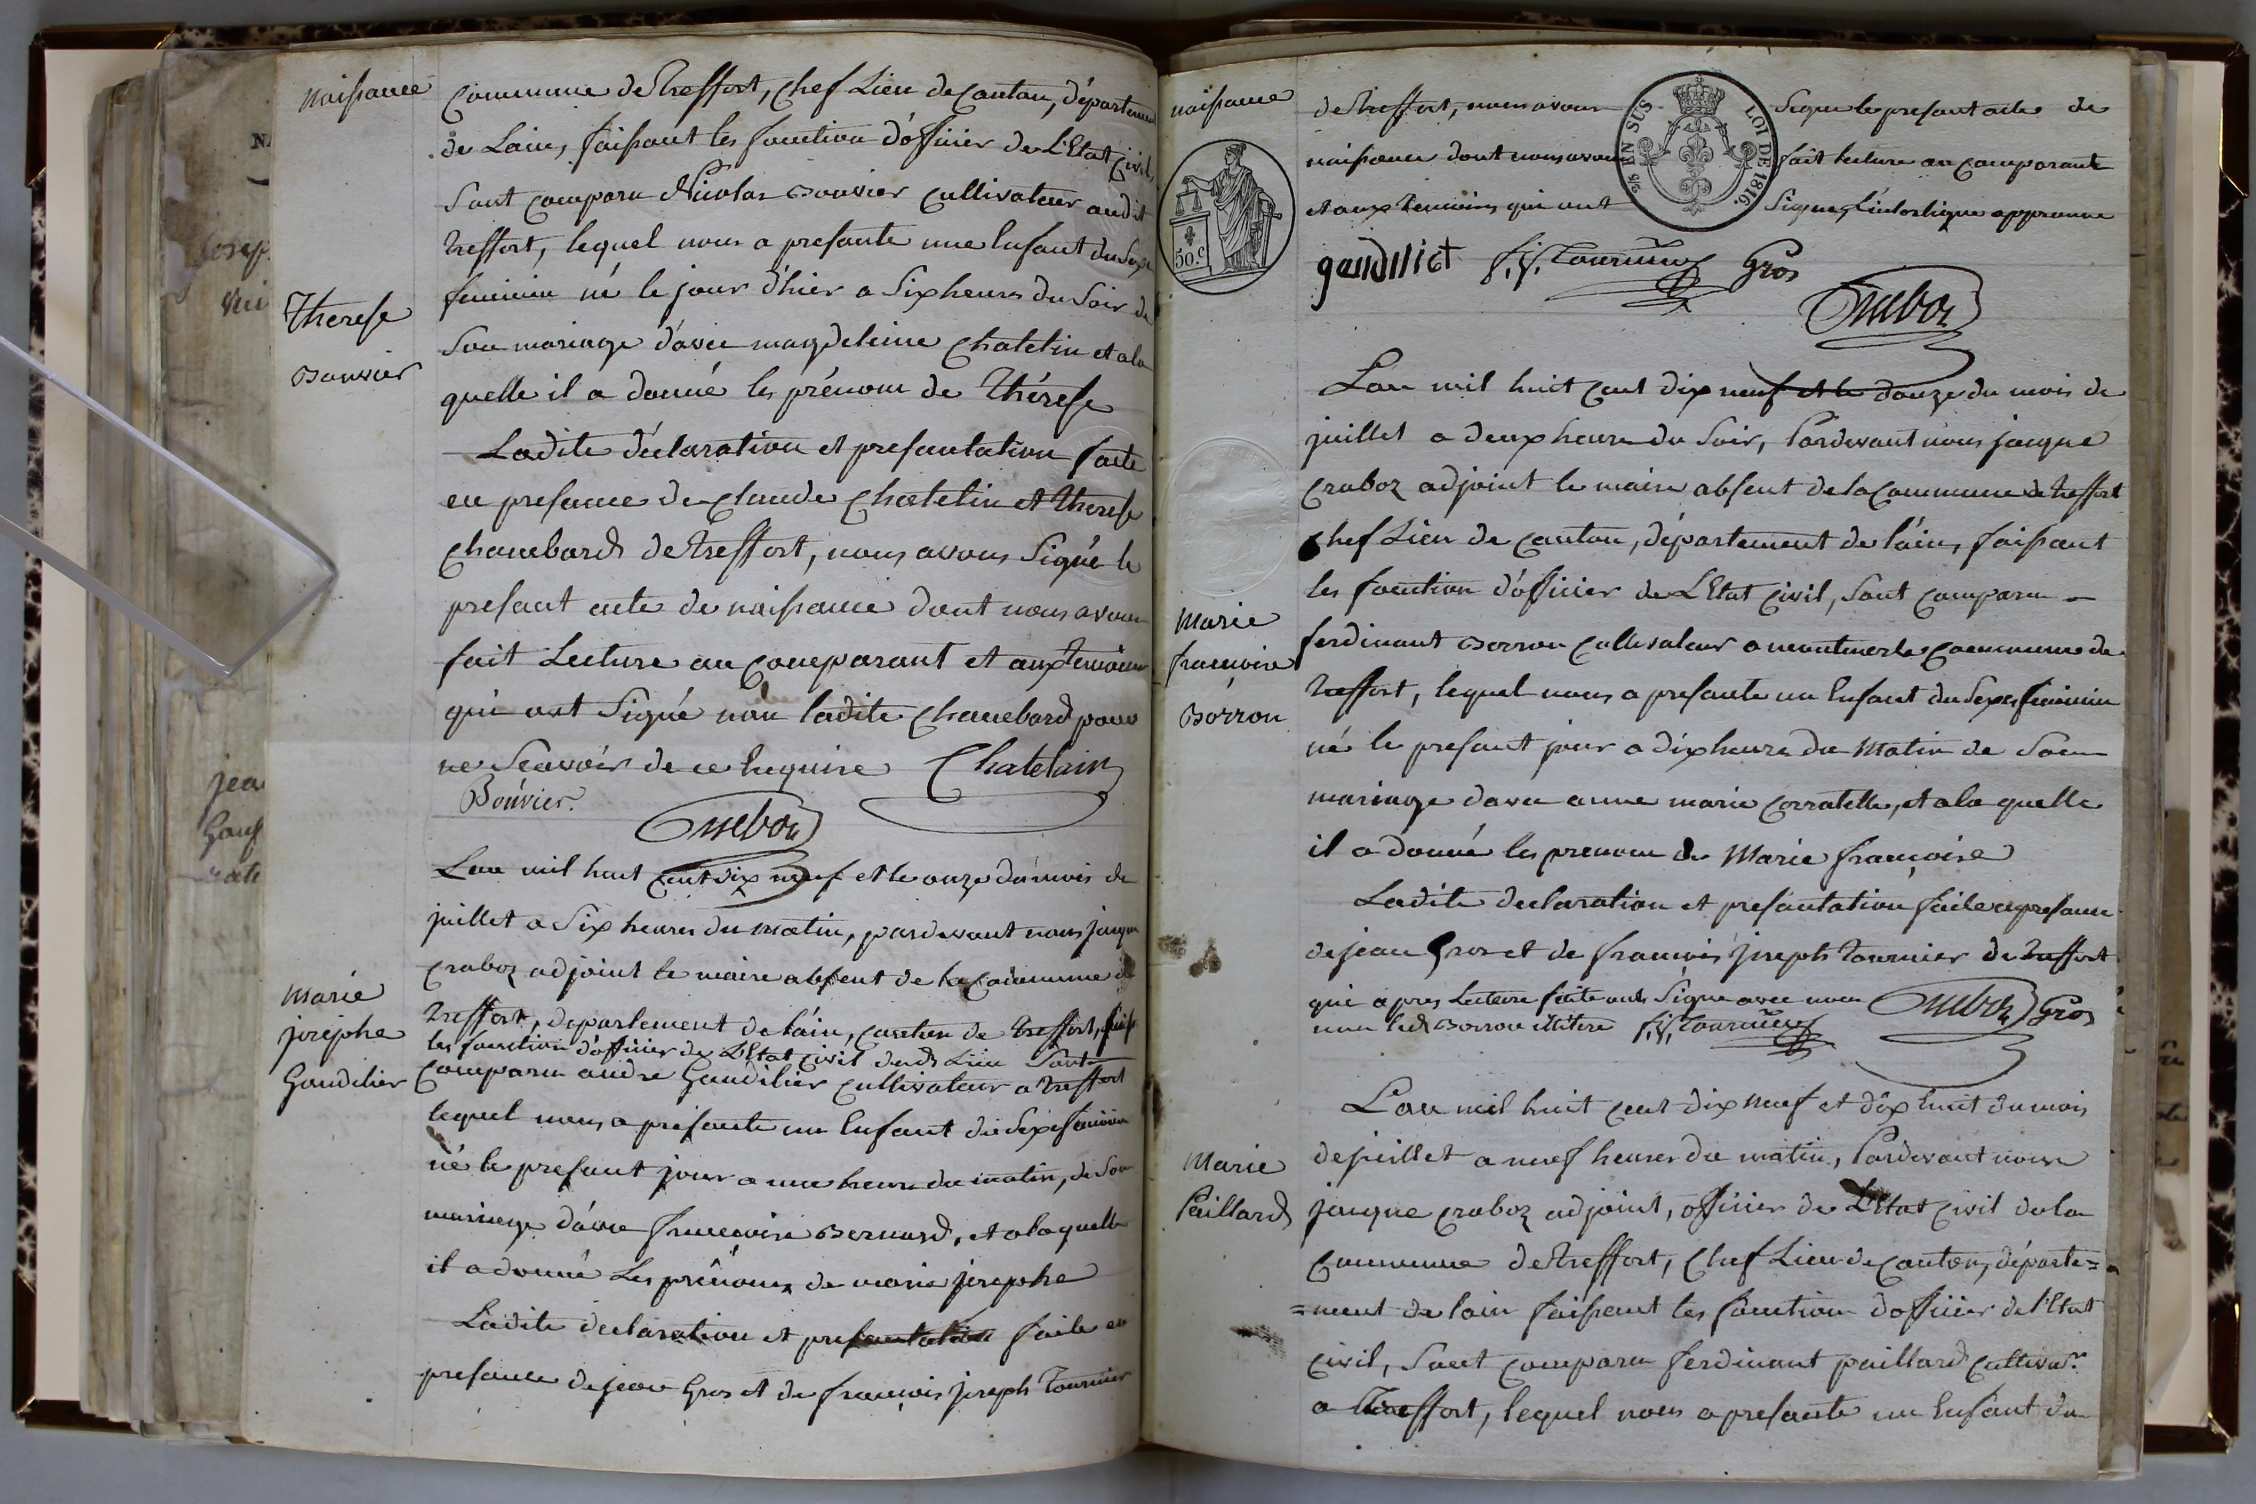 naissance
Commune de Treffort, chef Lieu de canton, départemen
de Lain, faissant les fonction d'officier de L'Etat civil,
Sont comparu Nicolas Bouvier Cultivateur audit
Treffort, lequel nous a presanté une Enfant du Sexe
feminin né le jour d'hier a Six heures du Soir de
Therese
Bouvier
Son mariage d'avec magdeleine Chatelin et a la
quelle il a donné les prénom de Thérese
Ladite déclaration et presantation faite
en presance de Claude Chatelin et Therese
Chanebard de Treffort, nous avons Signé le
presant acte de naissance dont nous avons
fait Lecture au comparant et aux temoins
qui ont Signé non ladite Chanebard pour
ne Scavoir de ce Enquise Chatelain
Bouvier.
Craboz
Lan mil huit cent dix neuf et le onze du mois de
juillet a Six heures du matin, pardevant nous jaque
Craboz adjoint le maire absent de la Commune de
Marie
josephe
Gaudilier
Treffort, departement de láin, canton de Treffort, faiss
les fonction d'officier de L'Etat civil dud. Lieu Sont
Comparu andre Gaudilier cultivateur a Treffort
lequel nous a presanté un Enfant du Sexe feminin
né le presant jour a une heure du matin, de Son
mariage d'avec francoise Bernard, et a laquelle
il a donné Les prénoms de marie josephe
Ladite declaration et presantation faite en
presance de jean Gros et de françois joseph Tournier
naissance
de Treffort, nous avons Signé le presant acte de
naissance dont nous avons fait lecture au comparant
et aux temoins qui ont Signé, L'interligne approuvée
3/5 EN SUS
LOI DE 1816.
50.C
gaudiliet f.j. Tournier Gros
Craboz
Lan mil huit cent dix neuf et le douze du mois de
juillet a deux heure du Soir, Pardevant nous jaque
Craboz adjoint le maire absent de la Commune de Treffort
chef Lieu de canton, département de láin, faissant
les fonction d'officier de L'Etat civil, Sont comparu
Marie
françoise
Borron
ferdinant Borron Cultivateur a montmerle Commune de
Treffort, lequel nous a presanté un Enfant du Sexe feminin
né le presant jour a dix heure du Matin de Son
mariage davec anne marie Corratelle, et a la quelle
il a donné les prenom de Marie françoise
Ladite declaration et presantation faite en presance
de jean Gros et de françois joseph Tournier de Treffort
qui apres Lecture faite ont Signé avec nous Craboz Gros
non led. Borron illitéré f.j. Tournier
Lan mil huit cent dix neuf et dix huit du mois
de juillet a neuf heures du matin, Pardevant nous
Marie
Paillard
jaque Craboz adjoint, officier de L'Etat civil de la
Commune de Treffort, Chef Lieu de canton, départe=
=ment de lain faissant les fonction d'officier de l'Etat
civil, Sont comparu ferdinant paillard cultivar.
a Treffort, lequel nous a presanté un Enfant du